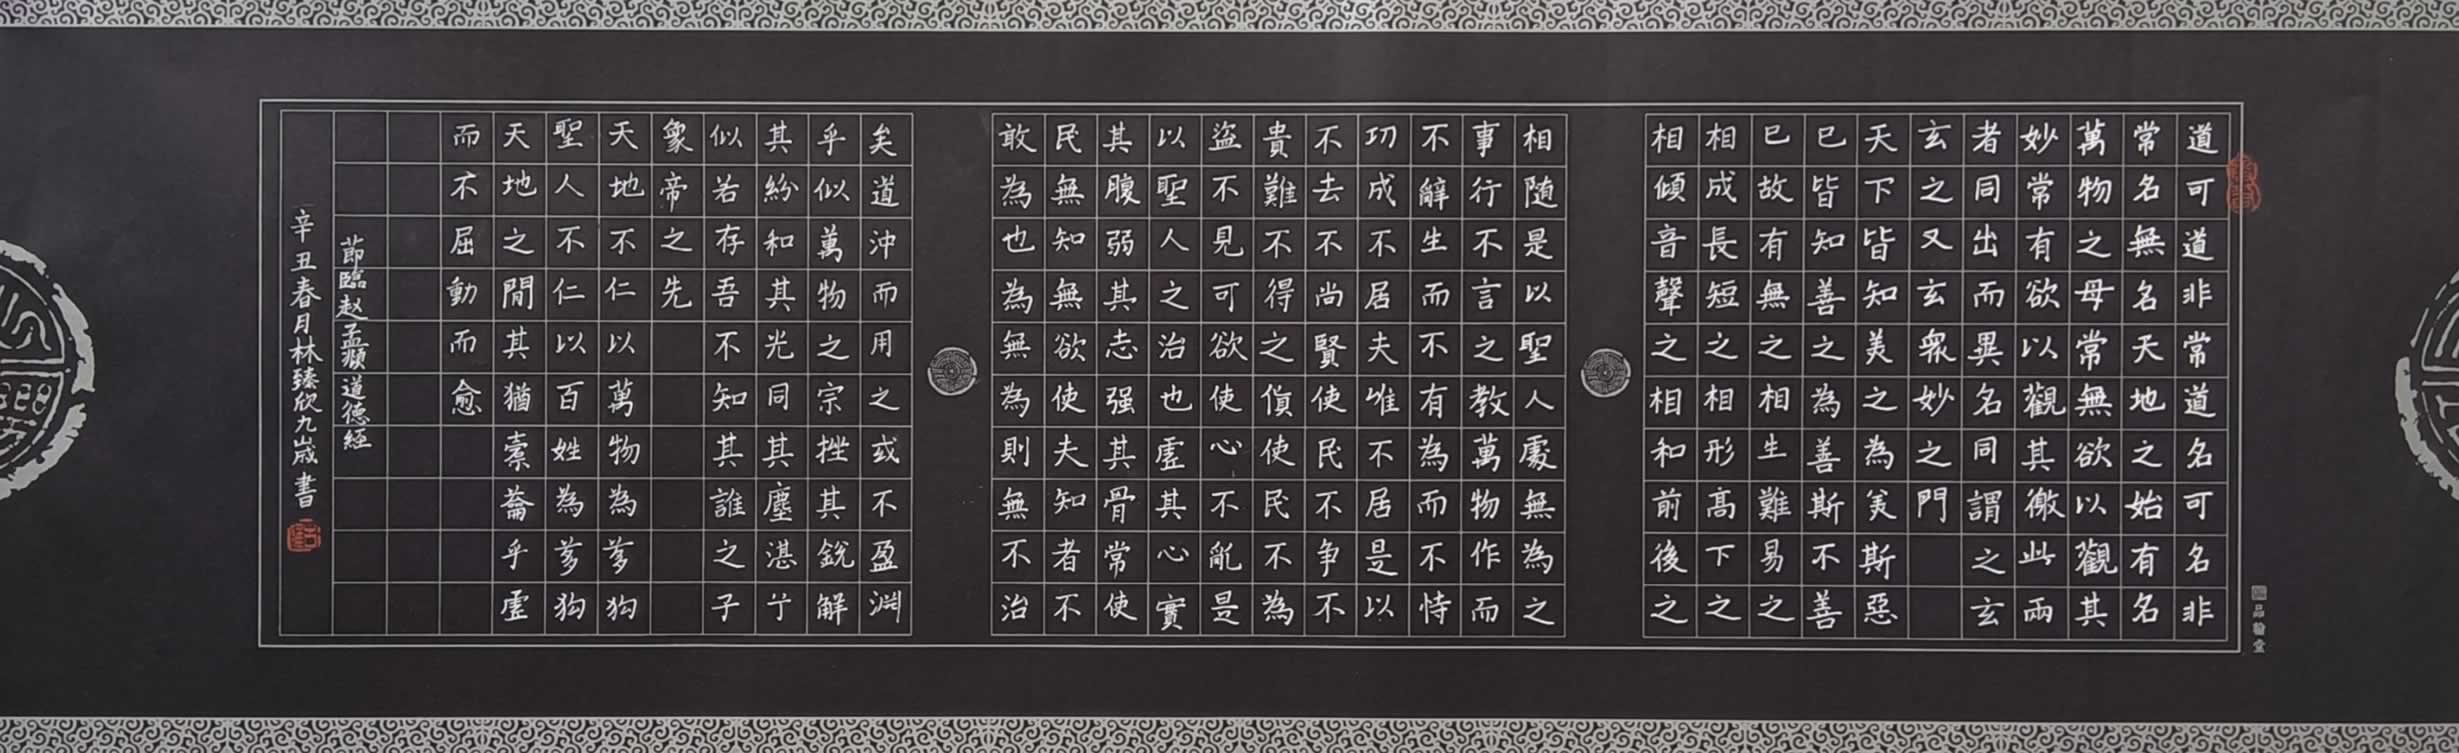 道可道非常道名可名非
常名無名天地之始有名
萬物之母常無欲以觀其
妙常有欲以觀其徼此兩
者同出而異名同謂之玄
玄之又玄衆妙之門
天下皆知美之為美斯惡
已皆知善之為善斯不善
已故有無之相生難易之
相成長短之相形高下之
相傾音聲之相和前後之
相随是以聖人處無為之
事行不言之教萬物作而
不辭生而不有為而不恃
功成不居夫唯不居是以
不去不尚賢使民不争不
貴難得之貨使民不為
盜不見可欲使心不亂是
以聖人之治也虛其心實
其腹弱其志强其骨常使
民無知無欲使夫知者不
敢為也為無為則無不治
矣道沖而用之或不盈淵
乎似萬物之宗挫其銳解
其紛和其光同其塵湛兮
似若存吾不知其誰之子
象帝之先
天地不仁以萬物為芻狗
聖人不仁以百姓為芻狗
天地之間其猶橐籥乎虛
而不屈動而愈
節臨赵孟頫道德經
辛丑春月林臻欣九歲書
品翰堂